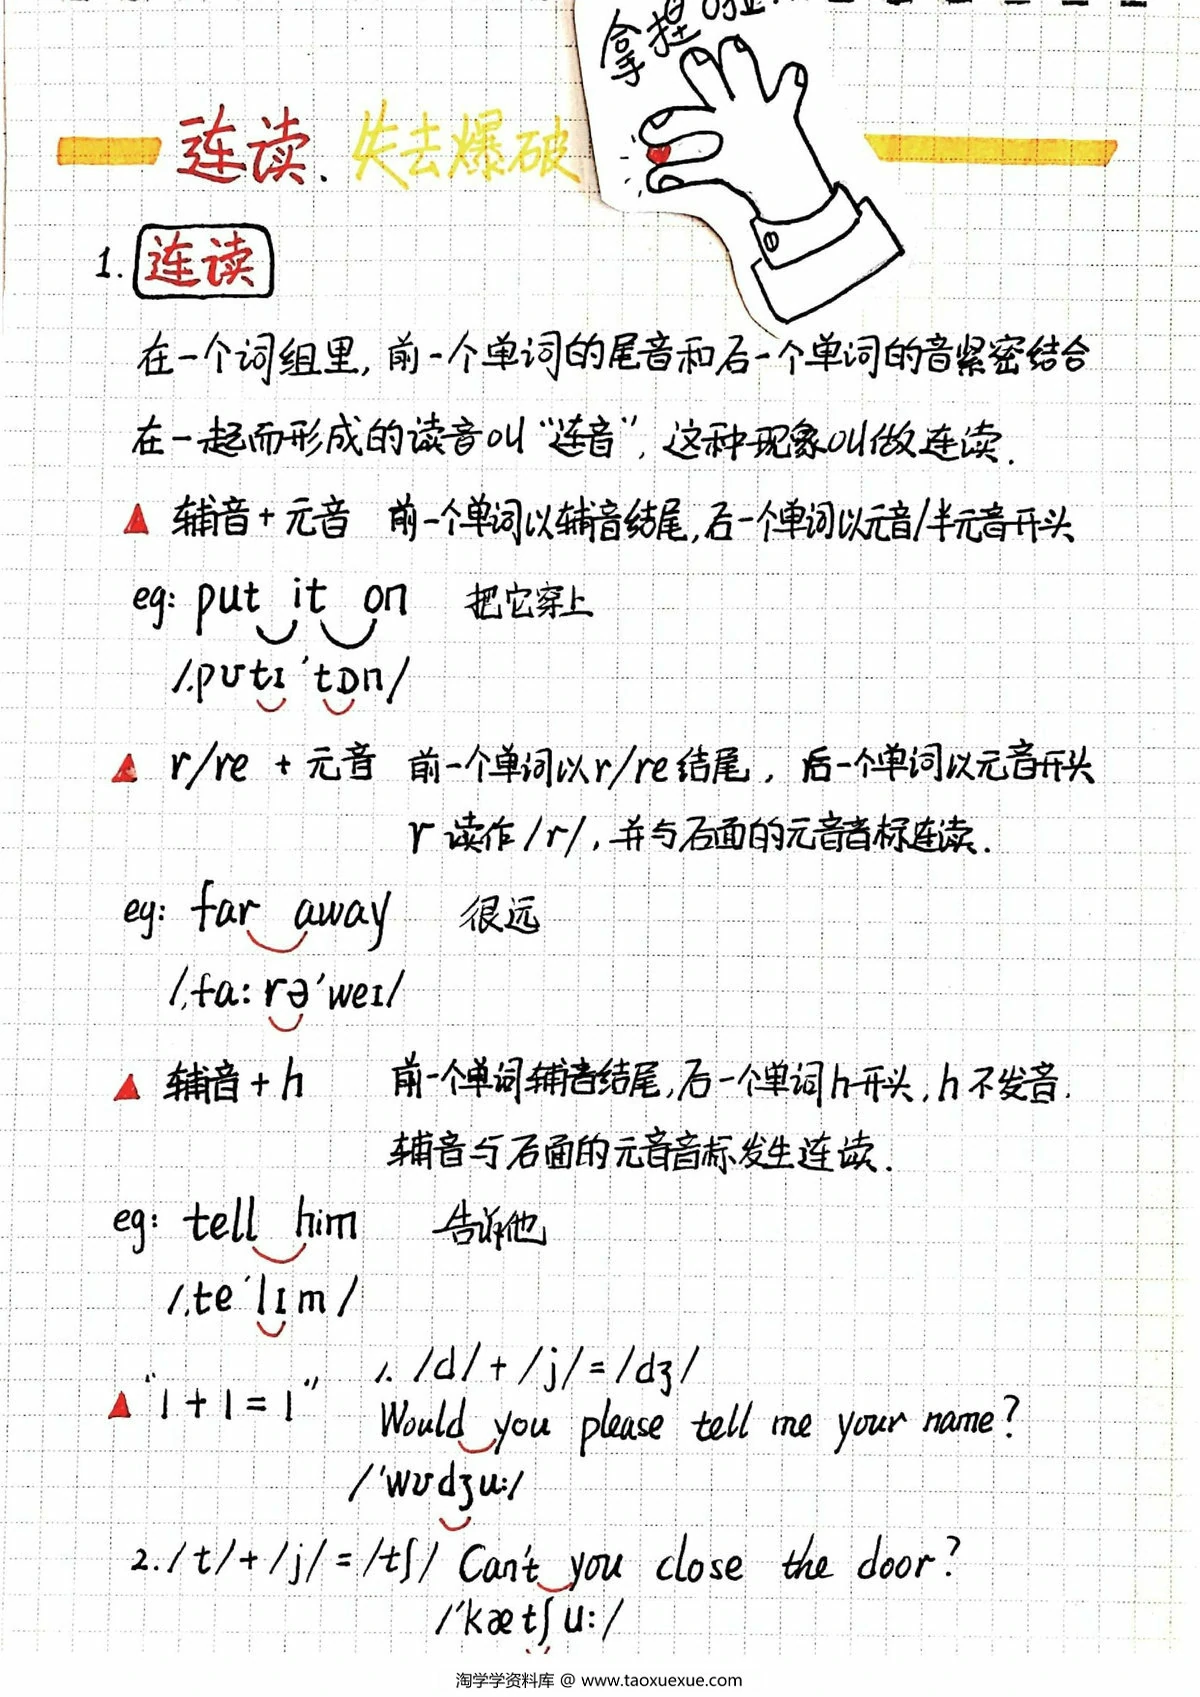 拿捏啦...
连读.失去爆破
1. 连读
在一个词组里,前一个单词的尾音和后一个单词的音紧密结合
在一起而形成的读音叫“连音”,这种现象叫做连读.
辅音+元音 前一个单词以辅音结尾,后一个单词以元音/半元音开头
eg: put it on 把它穿上
/ˌpʊtɪ ˈtɒn/
r/re + 元音 前一个单词以r/re结尾, 后一个单词以元音开头
r 读作/r/,并与后面的元音音标连读.
eg: far away 很远
/ˌfa:rəˈweɪ/
辅音+h 前一个单词辅音结尾,后一个单词h开头,h不发音.
辅音与后面的元音音标发生连读.
eg: tell him 告诉他
/ˌteˈlɪm/
“1+1=1” 1. /d/+/j/=/dʒ/
Would you please tell me your name?
/ˈwʊdʒu:/
2. /t/+/j/=/tʃ/ Can't you close the door?
/ˈkætʃu:/
淘学学资料库 @ www.taoxuexue.com